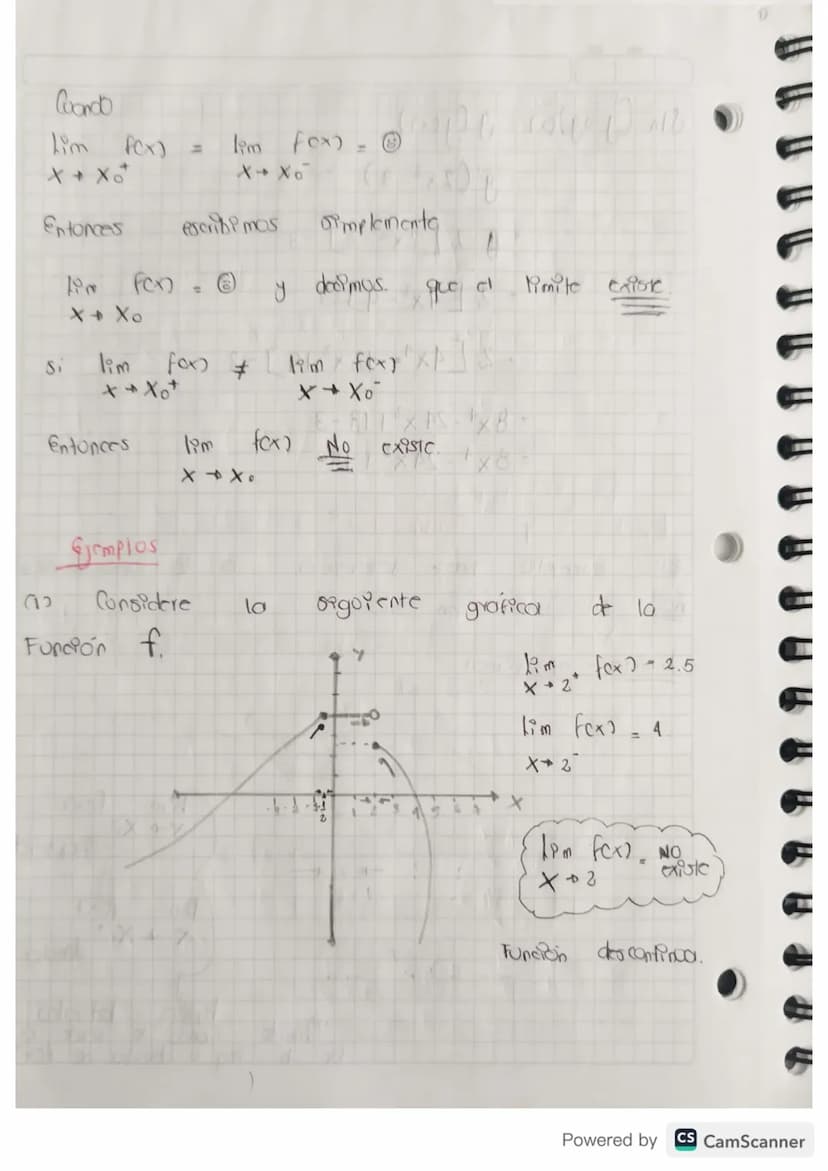 Cuando
lim f(x) = lim f(x) = ☺
x → x₀⁺ x → x₀⁻
Entonces escribimos simplemente
lim f(x) = ☺ y decimos que el limite existe
x → x₀
si lim f(x) ≠ lim f(x)
x → x₀⁺ x → x₀⁻
Entonces lim f(x) No existe.
x → x₀
Ejemplos
(1) Considere la siguiente gráfica de la
Función f.
y
lim f(x) = 2.5
x → 2⁺
lim f(x) = 4
x → 2⁻
x
lim f(x) = NO existe
x → 2
Función descontinua.
Powered by CS CamScanner